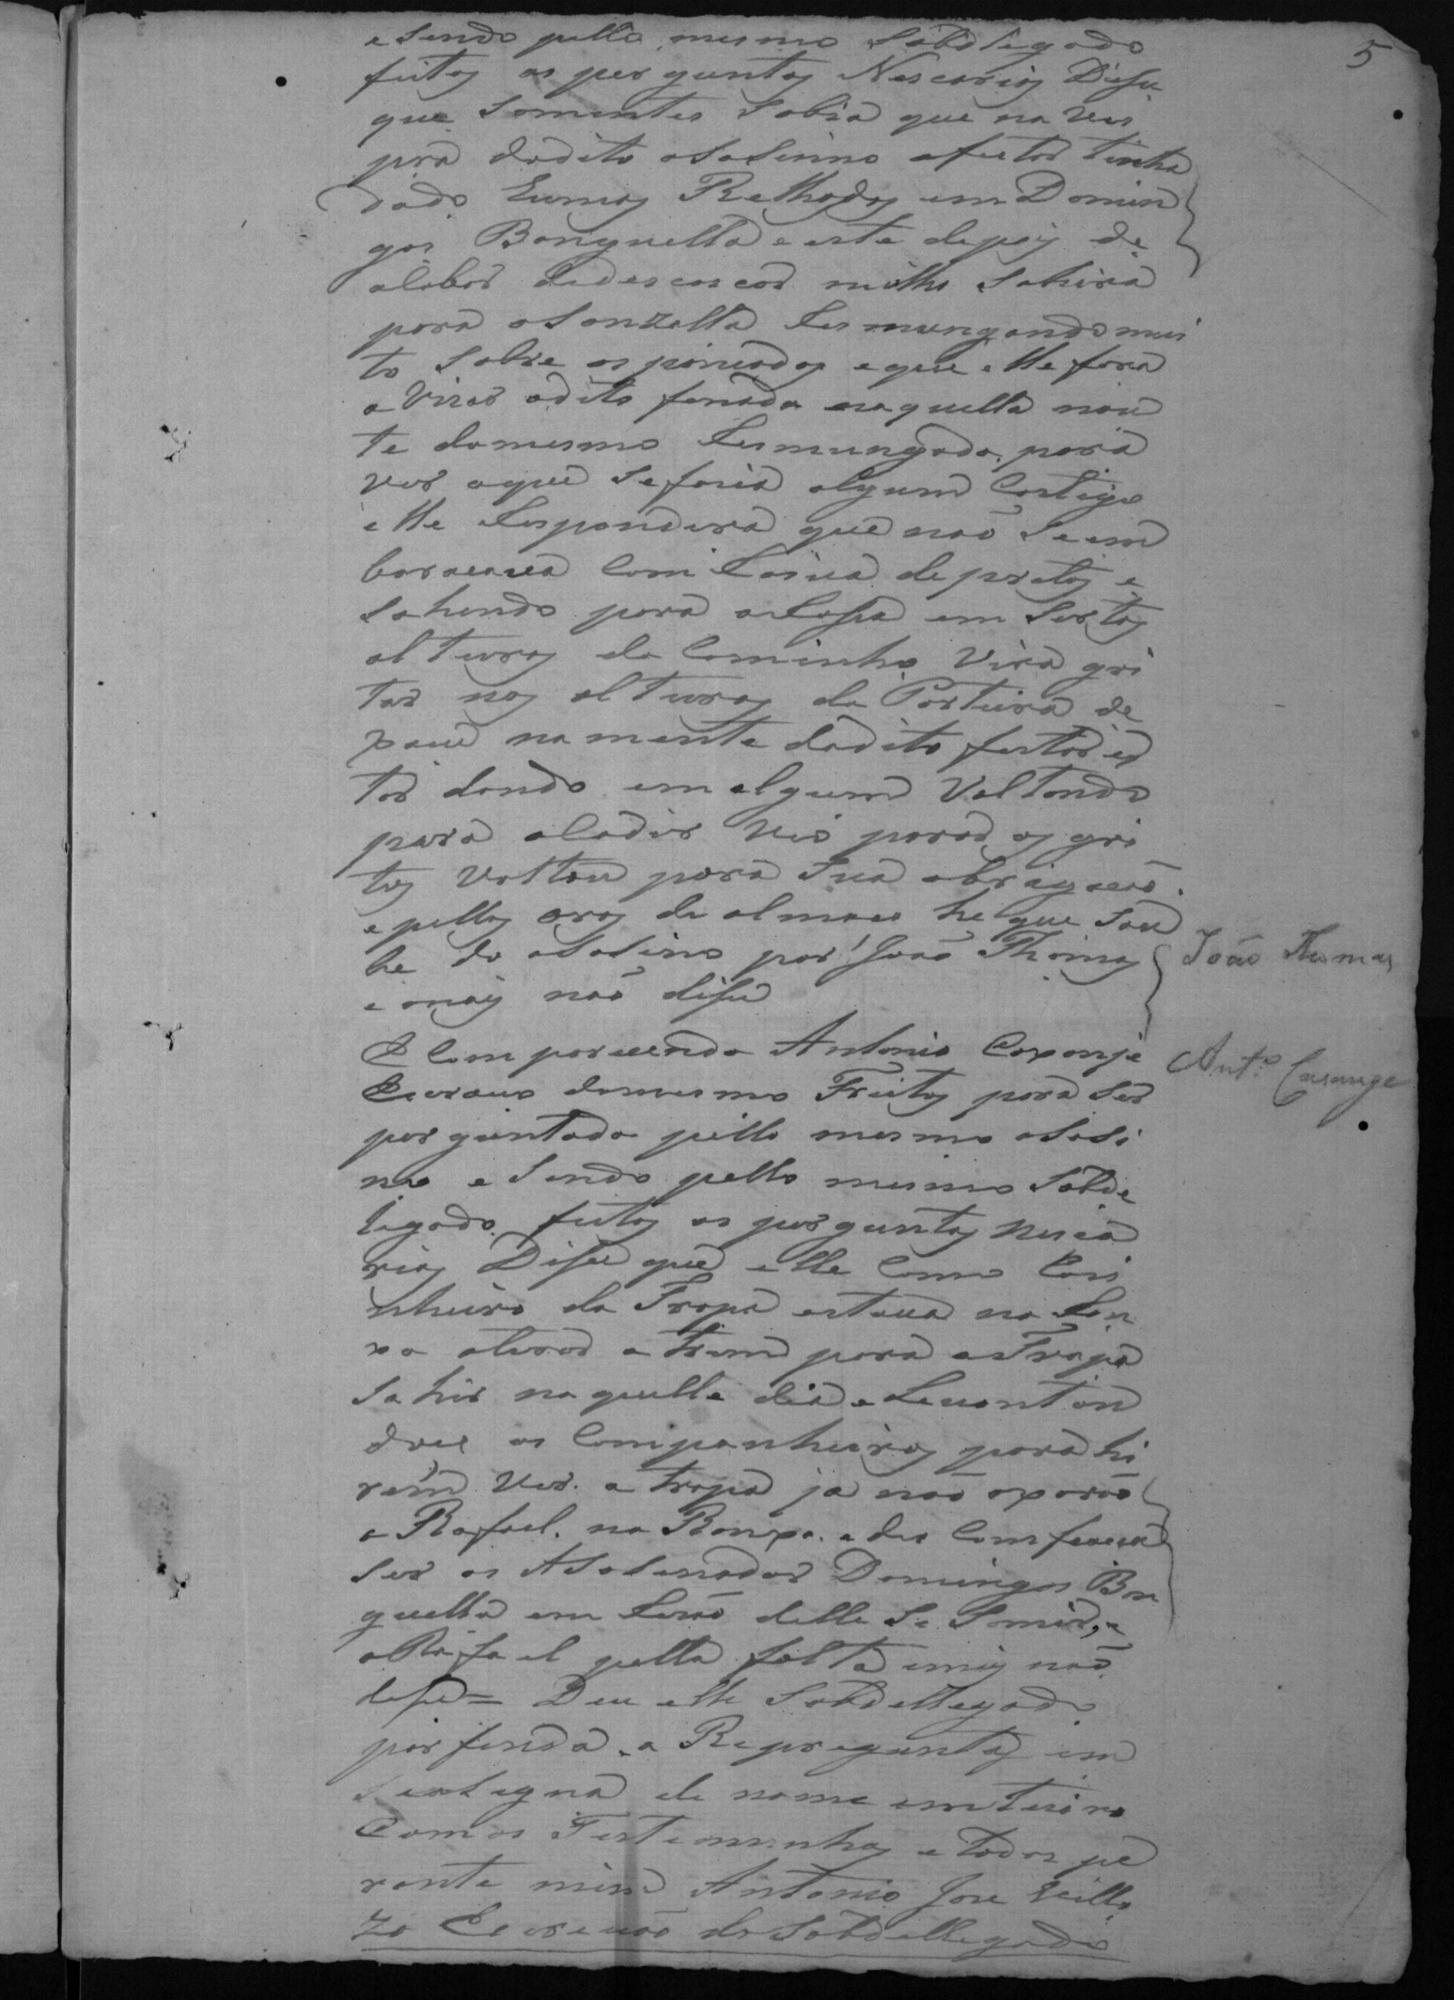 5
e sendo pello mesmo Sobdlegado
feitas as perguntas Nescarias Disse
que somentes sabia que na ves
pra dodito asasinno ofeitor tinha
dado humas Relhadas em Domin
gos Benguella e este depois de
alabar dedescascar milho sahira
para asanzalla Resmungando mui
to sobre as pancadas e que elle fora
avizar odito feitor naquella noi
te domesmo Resmungado para
ver aque se faria algum Castigo
elle Respondera que não se em
baracava Com Raiva de pretos e
sahindo para a Rossa em sertas
alturas do Caminho Vira gri
tar nas alturas da Porteira de
xou na mente dodito feitor es
tar dando em algum Voltando
para olador vio parar os gri
tos Voltou para sua obrigacão
e pellas oras de almoco he que sou
be do asasino por João Thomas
e mais não disse
João Thomas
E Comparecendo Antonio Caxanje
Escravo domesmo Freitas para ser
perguntado pello mesmo asasi
no e sendo pello mesmo Sobde
legado feitas as perguntas nesca
rias Disse que elle Como Cosi
nheiro da Tropa estava no Ran
xo a trem para a Tropa
sahir naquelle dia e Levantan
dose os Companheiros para hi
rem ver a tropa ja não axarão
a Rafael na Ranxo e deo Comfeca
ser os Asasinador Domingos Ben
guella em Rasão delle se sumir, e
o Rafael pella falta e mais não
disse = Deu elle Sobdellegado
por finda a Repreguntas em
seasegna de nome emteiro
Com as Testemunhas e todos pe
rante mim Antonio Jose Vello
zo Escrevão do Sobdellegado
Ant.º Casange